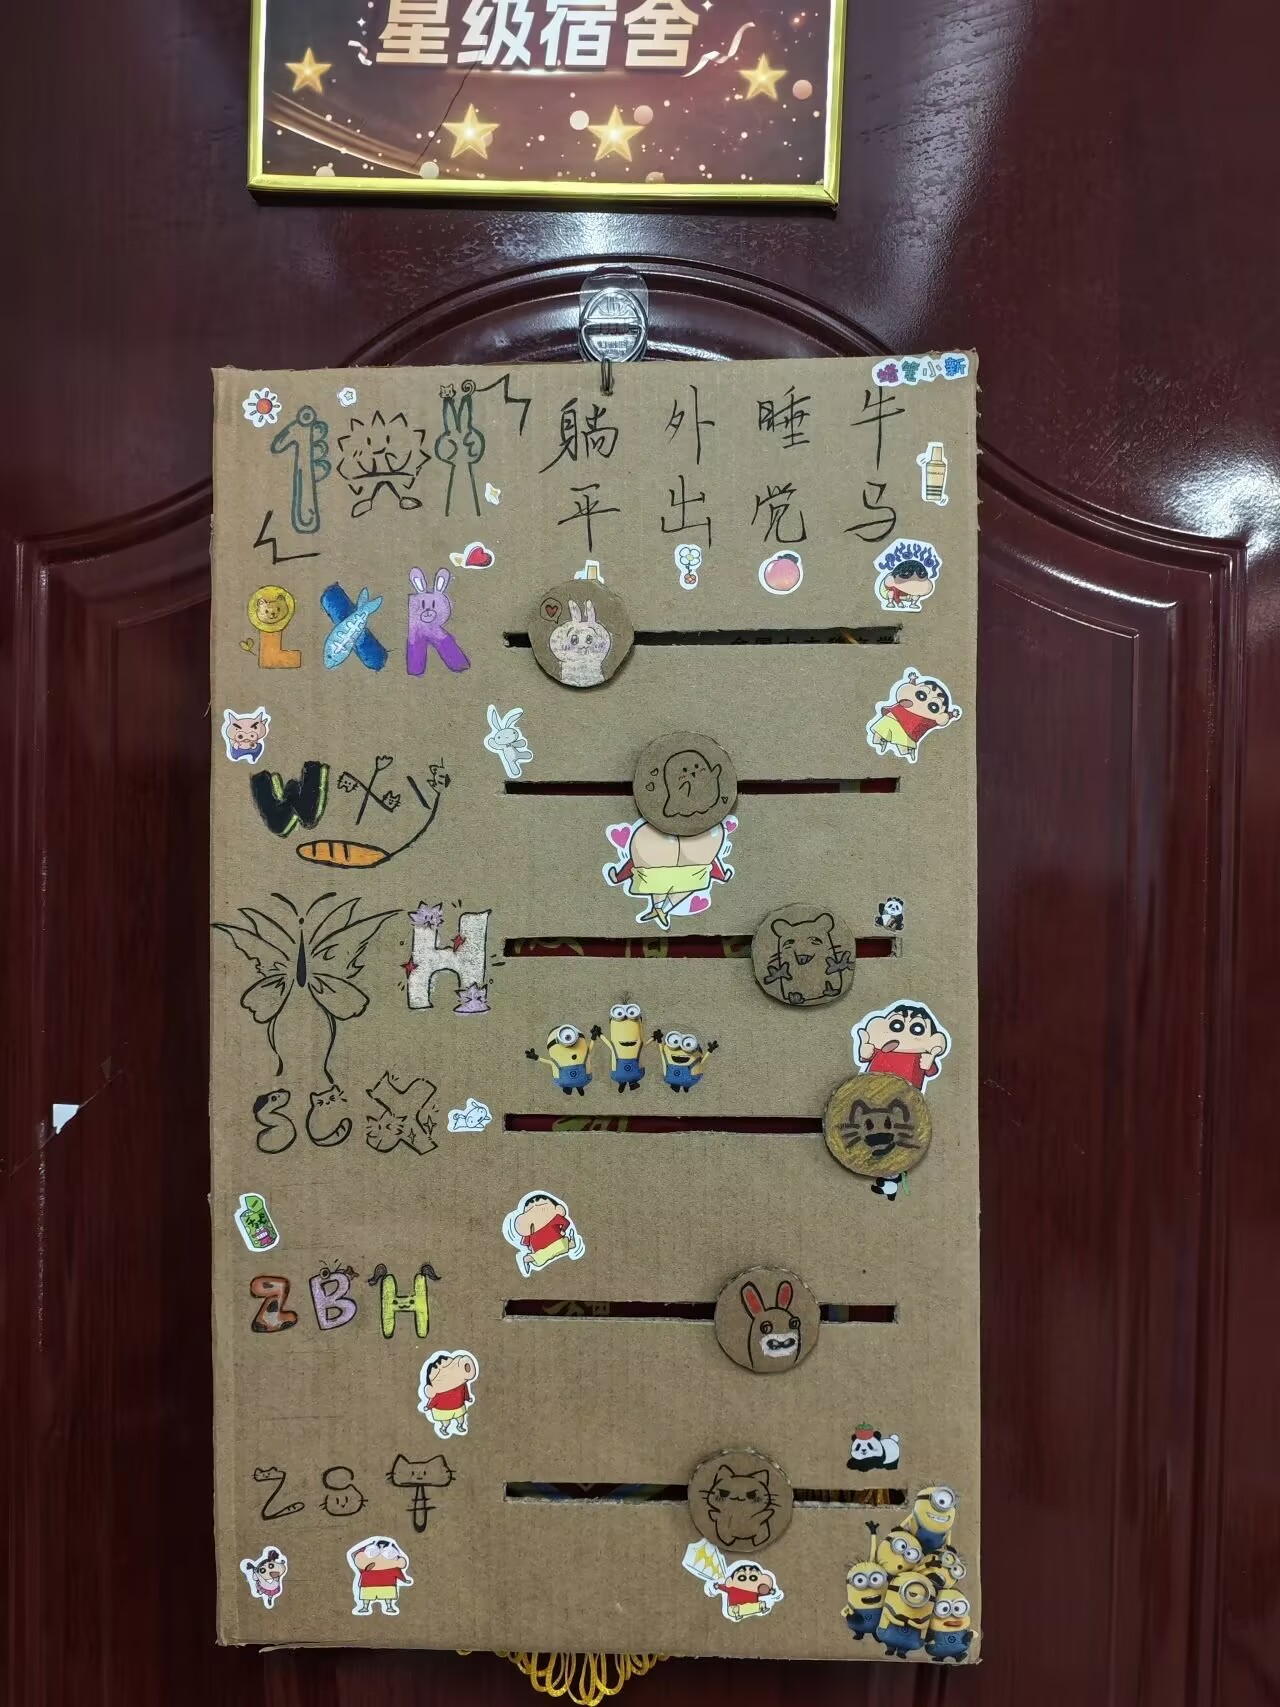 星级宿舍
蜡笔小新
躺平 外出 睡觉 牛马
LXR
WXY
H
SCX
ZBH
ZST